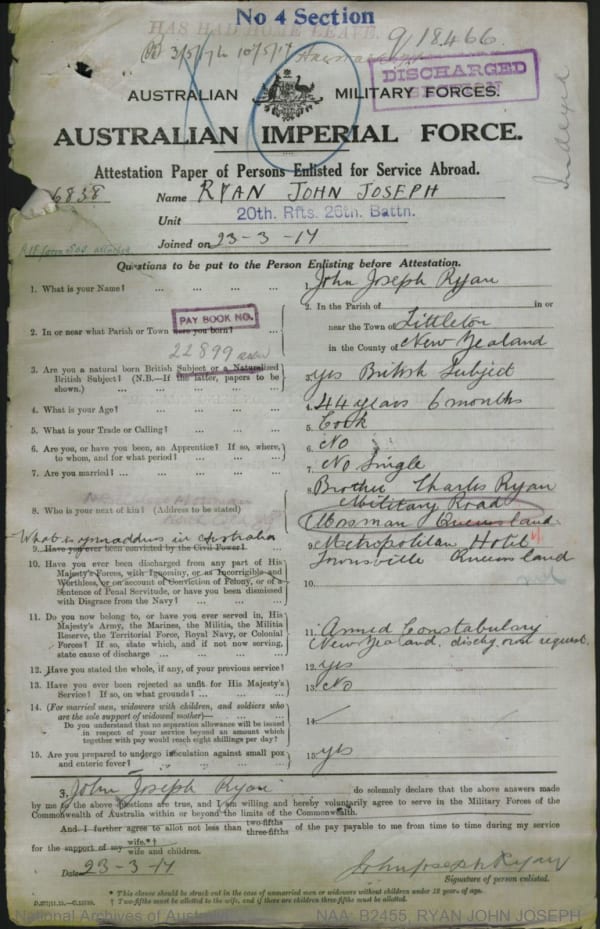 No 4 Section
HAS HAD HOME LEAVE.
3/5/17 to 10/5/17
9/18466
DISCHARGED
AUSTRALIAN MILITARY FORCES.
AUSTRALIAN IMPERIAL FORCE.
Attestation Paper of Persons Enlisted for Service Abroad.
6838 Name RYAN JOHN JOSEPH
Unit 20th. Rfts. 26th. Battn.
Joined on 23-3-17
Questions to be put to the Person Enlisting before Attestation.
1. What is your Name? ... ... ... 1. John Joseph Ryan
2. In or near what Parish or Town were you born? ... 2. In the Parish of in or
near the Town of Littleton
in the County of New Zealand
PAY BOOK NO.
22899
3. Are you a natural born British Subject or a Naturalized
British Subject? (N.B.—If the latter, papers to be
shown.) ... ... ... 3. yes British Subject
4. What is your Age? ... ... ... 4. 44 years 6 months
5. What is your Trade or Calling? ... ... 5. Cook
6. Are you, or have you been, an Apprentice? If so, where,
to whom, and for what period? ... ... ... 6. No
7. Are you married? ... ... ... 7. No Single
8. Who is your next of kin? (Address to be stated) 8. Brother Charles Ryan
Military Road
Mosman Queensland
What is yr address in Australia
9. Have you ever been convicted by the Civil Power? ... 9. Metropolitan Hotel
Townsville Queensland
10. Have you ever been discharged from any part of His
Majesty's Forces, with Ignominy, or as Incorrigible and
Worthless, or on account of Conviction of Felony, or of a
Sentence of Penal Servitude, or have you been dismissed
with Disgrace from the Navy? ... ... 10.
11. Do you now belong to, or have you ever served in, His
Majesty's Army, the Marines, the Militia, the Militia
Reserve, the Territorial Force, Royal Navy, or Colonial
Forces? If so, state which, and if not now serving,
state cause of discharge ... ... ... 11. Armed Constabulary
New Zealand. dischg own request
12. Have you stated the whole, if any, of your previous service? 12. yes
13. Have you ever been rejected as unfit for His Majesty's
Service? If so, on what grounds? ... ... 13. No
14. (For married men, widowers with children, and soldiers who
are the sole support of widowed mother)—
Do you understand that no separation allowance will be issued
in respect of your service beyond an amount which
together with pay would reach eight shillings per day? ... 14.
15. Are you prepared to undergo inoculation against small pox
and enteric fever? ... ... ... 15. yes
3. John Joseph Ryan do solemnly declare that the above answers made
by me to the above questions are true, and I am willing and hereby voluntarily agree to serve in the Military Forces of the
Commonwealth of Australia within or beyond the limits of the Commonwealth.
And I further agree to allot not less than two-fifths three-fifths of the pay payable to me from time to time during my service
for the support of my wife.*† wife and children.
Date 23-3-17 John Joseph Ryan
Signature of person enlisted.
* This clause should be struck out in the case of unmarried men or widowers without children under 18 years of age.
† Two-fifths must be allotted to the wife, and if there are children three-fifths must be allotted.
National Archives of Australia NAA: B2455, RYAN JOHN JOSEPH